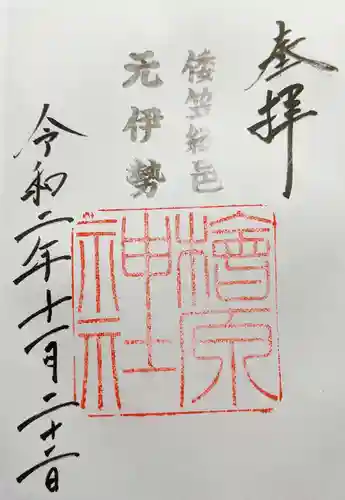 奉拝
倭笠縫邑
元伊勢
檜原
神社
令和二年十一月二十二日